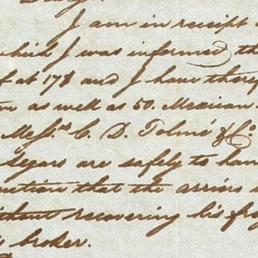 I am in receipt
which I was informed th
of at 178 and I have theref
as well as 50. Mexican
Messrs C. D. Tolmé & Co
segars are safely to han
nction that the arrivs
ithout recovering his fr
broker.